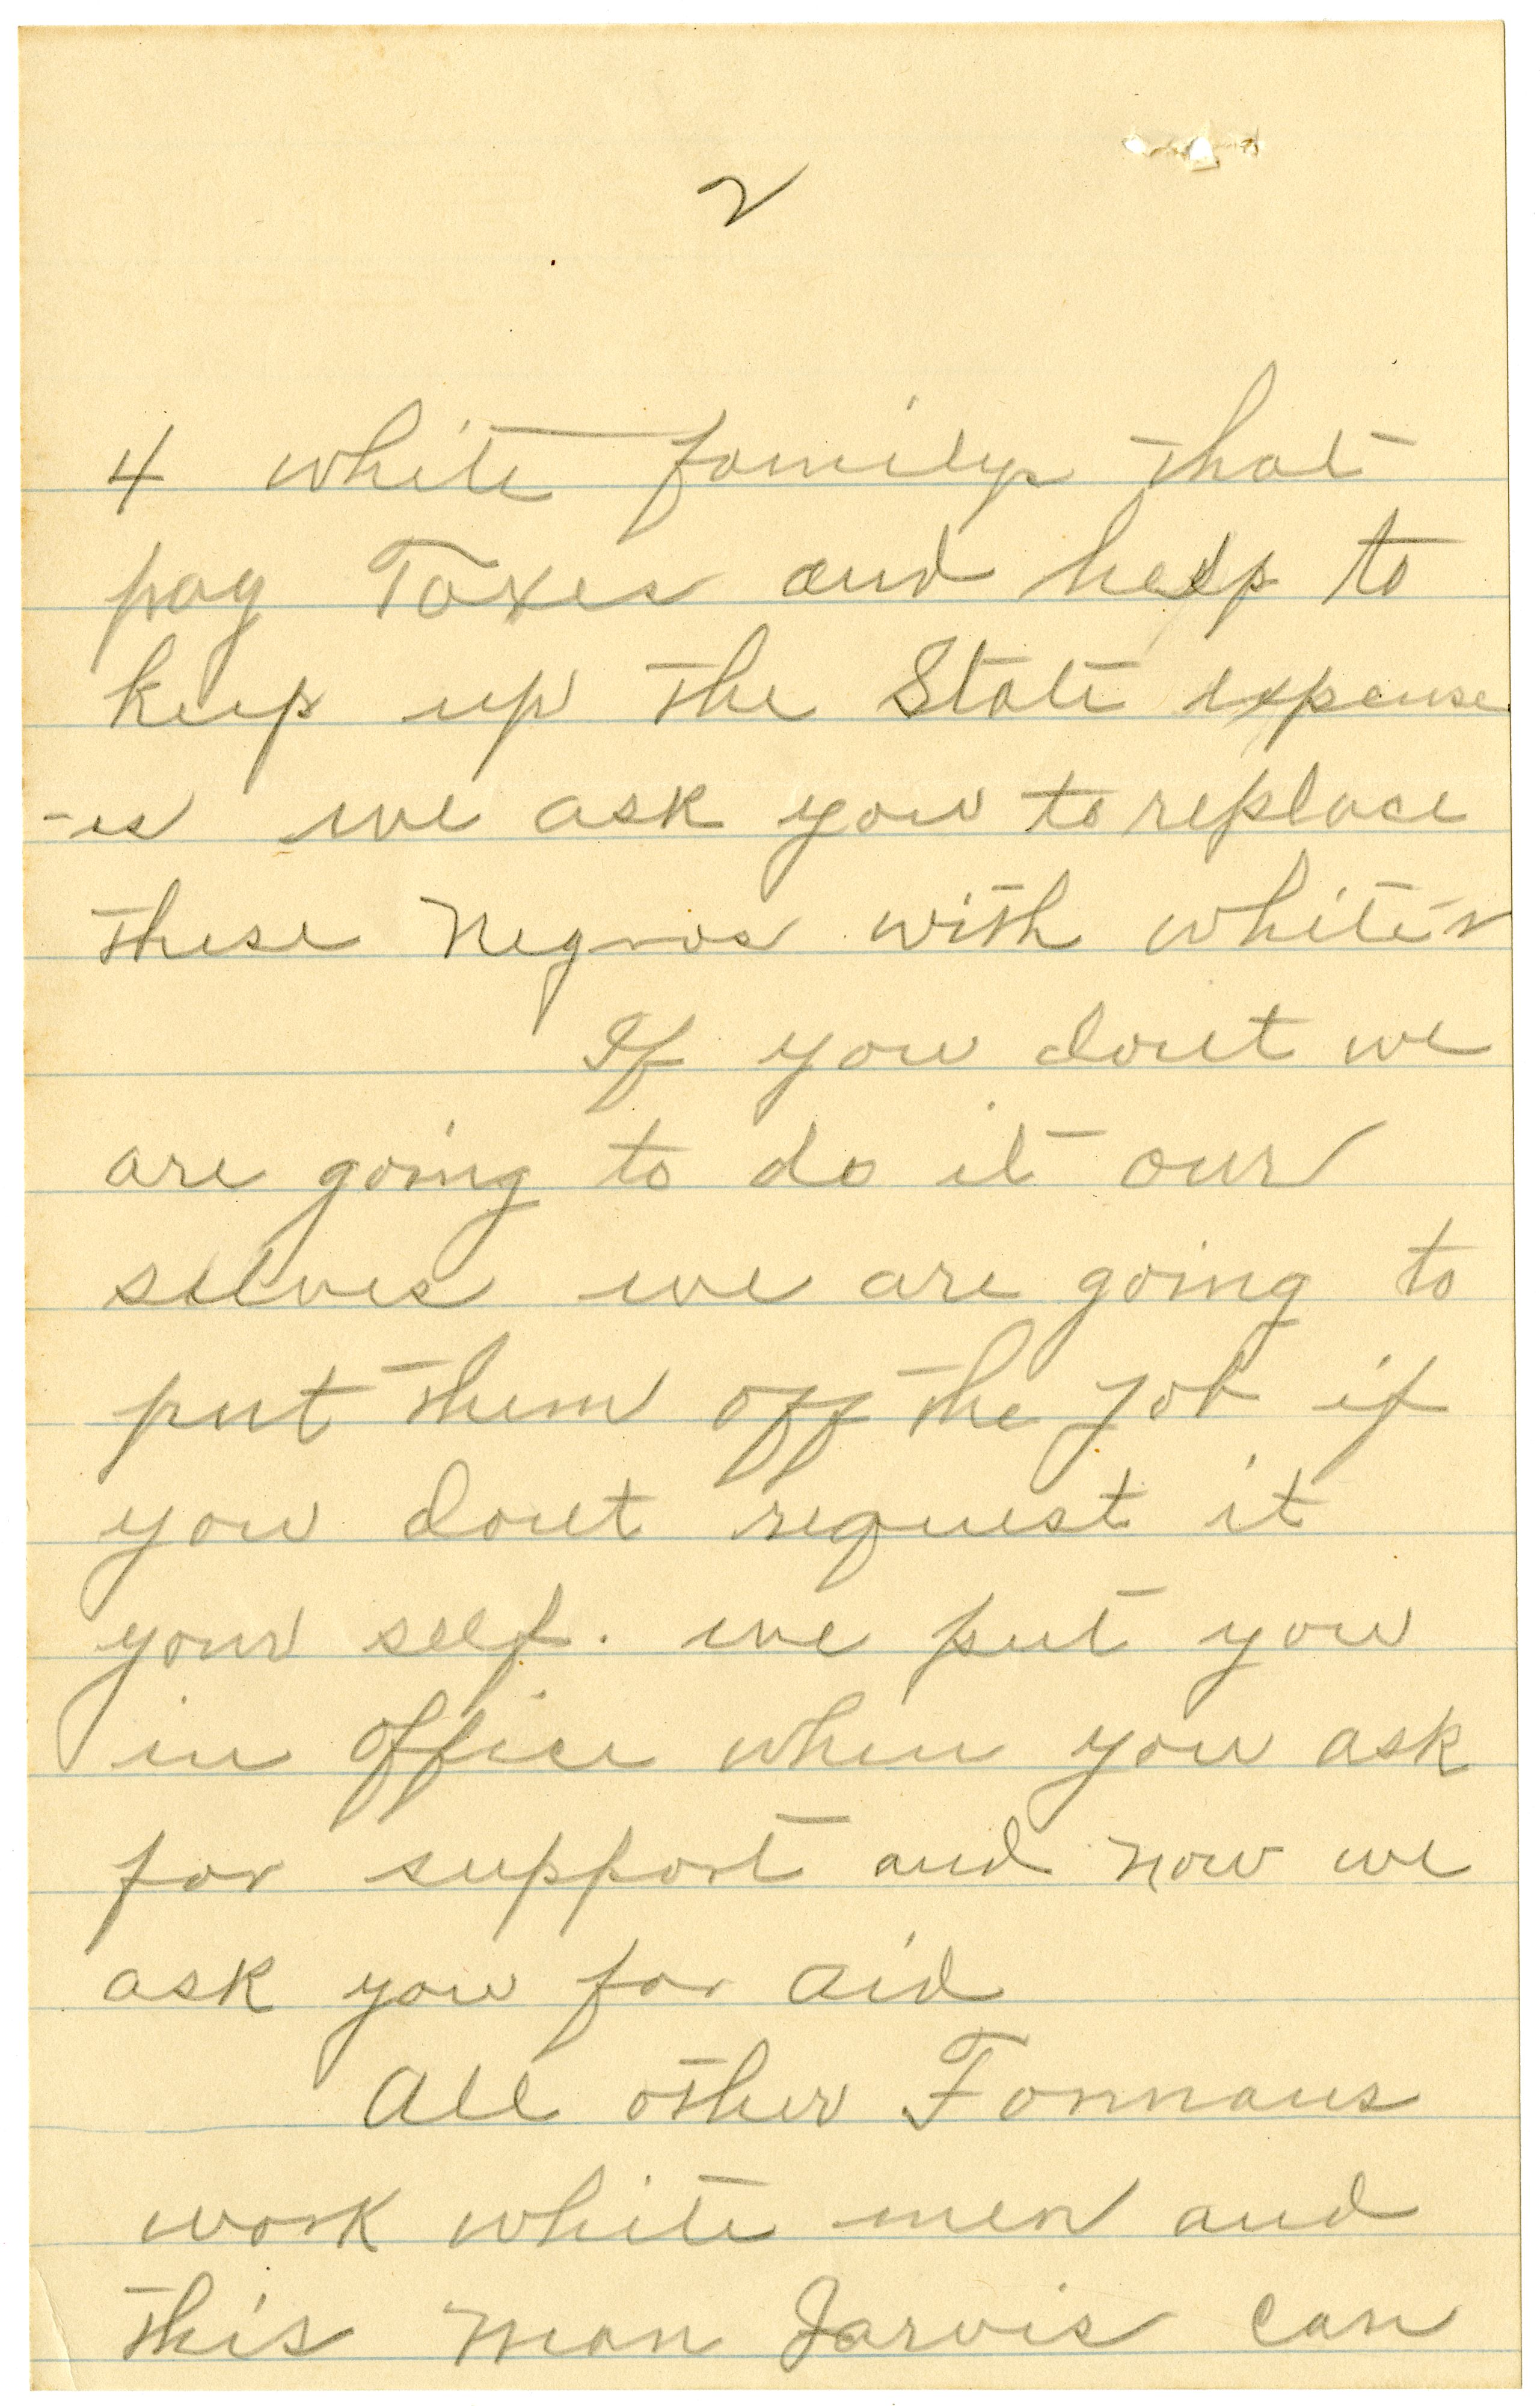 2
4 white familys that
pay Taxes and help to
keep up the State expense
-es we ask you to replace
these Negros with whites
If you dont we
are going to do it our
selves we are going to
put them off the job if
you dont request it
your self. we put you
in office when you ask
for support and now we
ask you for aid
All other Formans
work white men and
this man Jarvis can